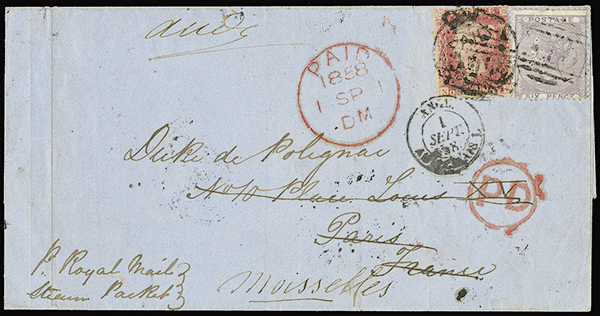 POSTAGE
SIX PENCE
PAID
1858
1 SP 1
DM
ANGL.
1
SEPT.
58
Duke de Polignac
No 10 Place Louis XV
PD
Paris
France
Moisselles
P. Royal Mail
Steam Packet